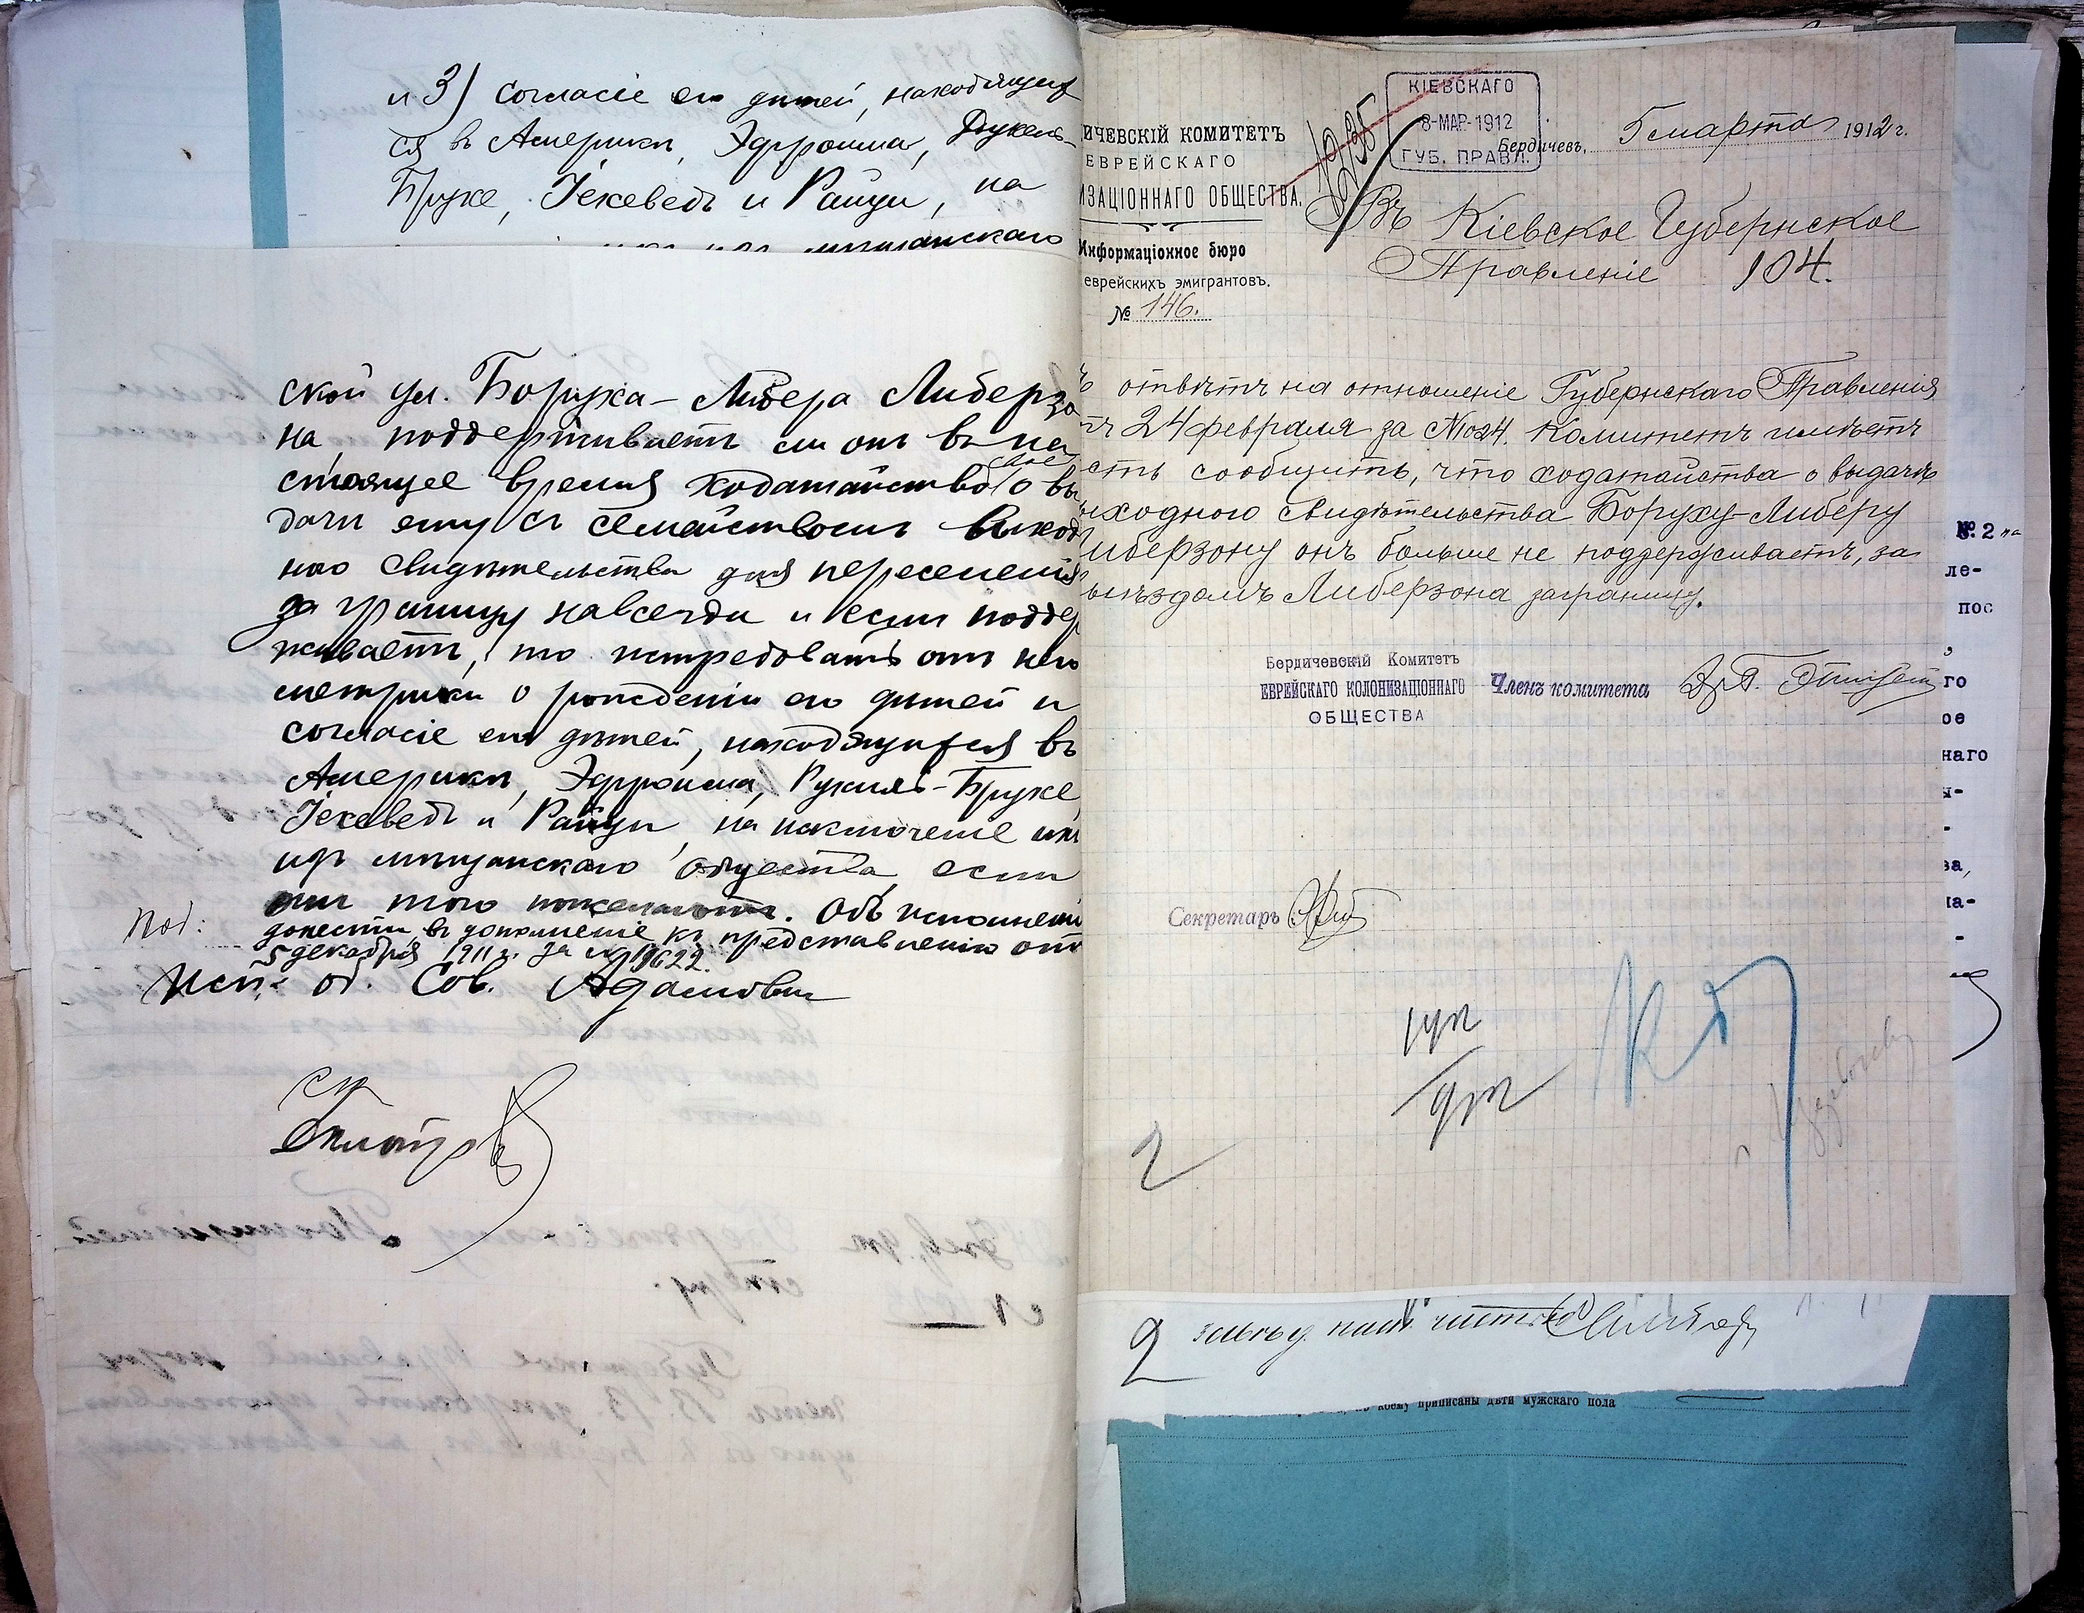 и 3) согласіе его дѣтей, находящих
ся въ Америкѣ, Эфроима, Рухель-
Брухе, Іехеведъ и Райци, на
мѣщанскаго
ской ул. Боруха-Либера Либерзо
на поддерживаетъ ли онъ въ на
свое
стоящее время ходатайство о вы
дачѣ ему съ семействомъ выход
ного свидѣтельства для переселенія
за границу навсегда и если поддер
живаетъ, то истребовать отъ него
метрики о рожденіи его дѣтей и
согласіе его дѣтей, находящихся въ
Америкѣ, Эфроима, Рухель-Брухе,
Іехеведъ и Райци, на исключеніе ихъ
изъ мѣщанскаго общества, если
они того пожелаютъ. Объ исполненіи
донести въ дополненіе къ представленію отъ
5 декабря 1911 г. за № 19622.
Под:
Исп. об. Сов. Адамович
КІЕВСКАГО
8-МАР-1912
ГУБ. ПРАВЛ.
ИЧЕВСКІЙ КОМИТЕТЪ
ЕВРЕЙСКАГО
ИЗАЦІОННАГО ОБЩЕСТВА.
Информаціонное бюро
еврейскихъ эмигрантовъ.
№ 146.
Бердичевъ, 5 марта 1912 г.
Въ Кіевское Губернское
Правленіе 104.
ъ отвѣтъ на отношеніе Губернскаго Правленія
тъ 24 февраля за №1024. Комитетъ имѣетъ
есть сообщить, что ходатайства о выдачѣ
ыходного свидѣтельства Боруху-Либеру
иберзону онъ больше не поддерживаетъ, за
ыѣздомъ Либерзона заграницу.
Бердичевскій Комитетъ
ЕВРЕЙСКАГО КОЛОНИЗАЦІОННАГО
ОБЩЕСТВА
Членъ комитета
Секретарь
2
2
къ коему приписаны дѣти мужскаго пола
№ 2 на
ле-
пос
,
го
ое
наго
ы-
-
ва,
на-
-